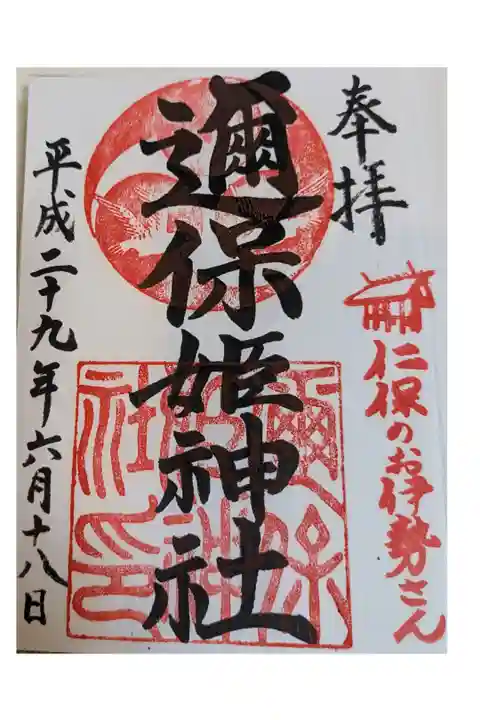 奉拝
仁保のお伊勢さん
邇保姫神社
平成二十九年六月十八日